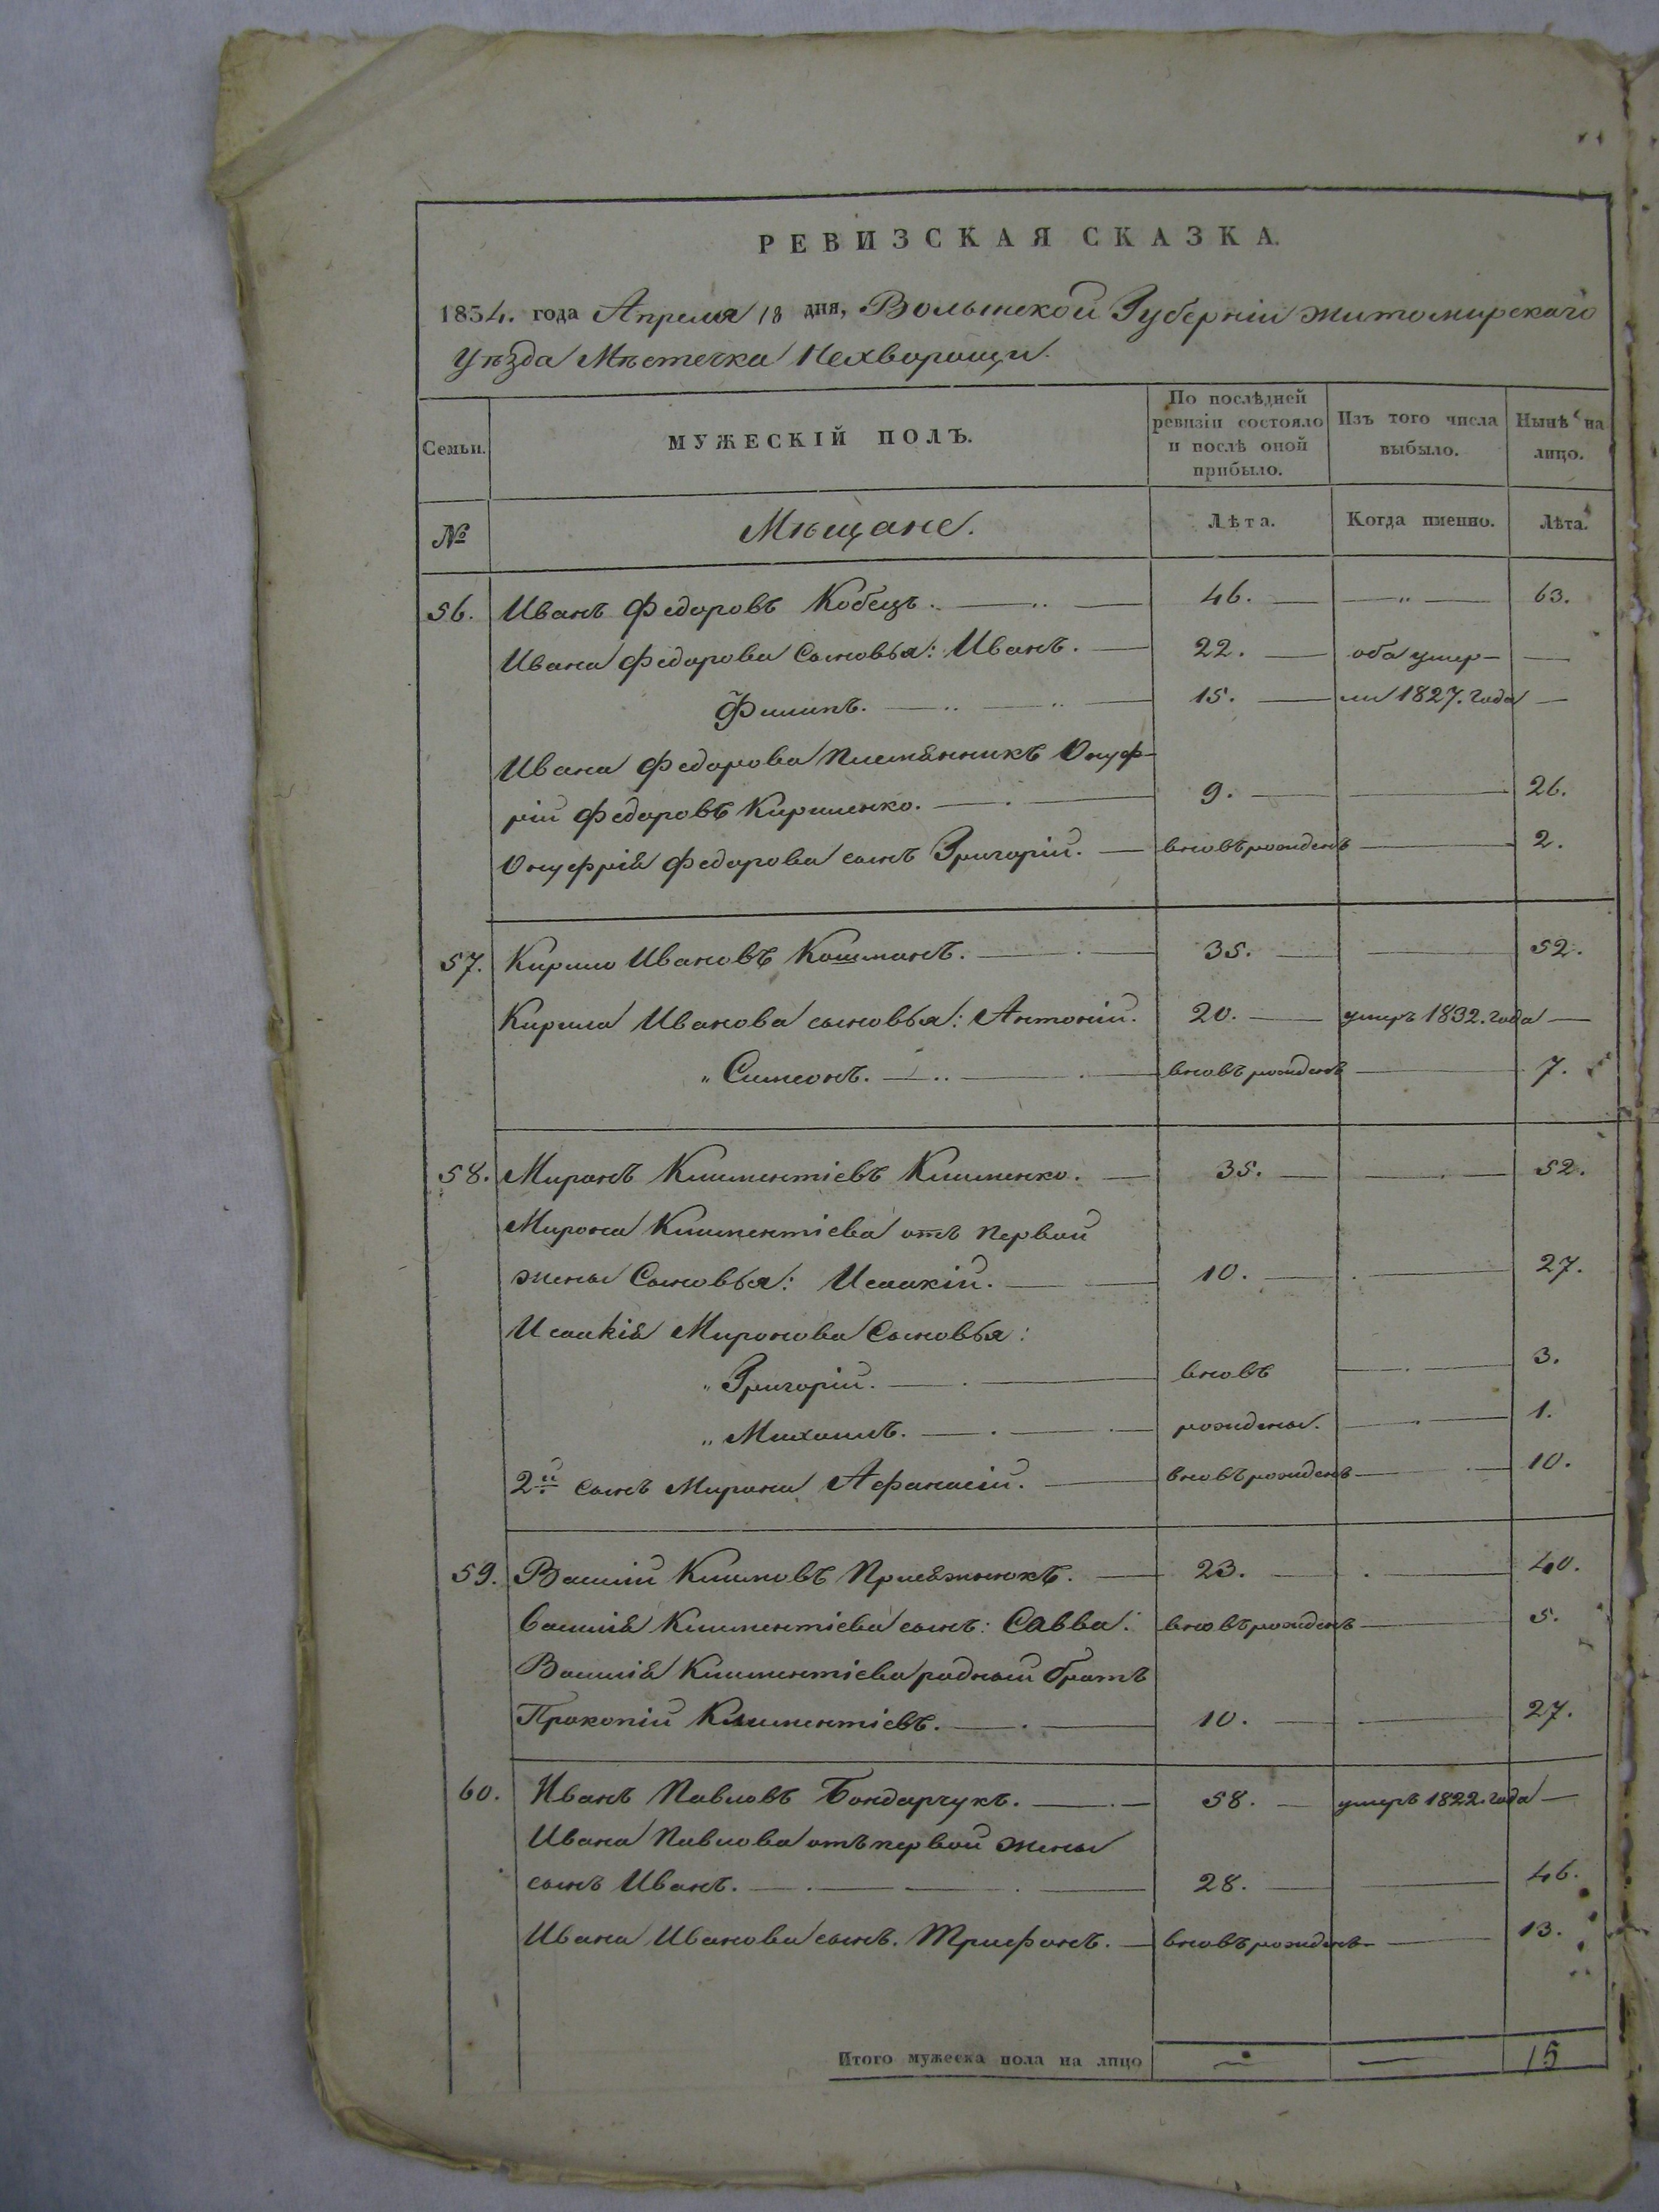 РЕВИЗСКАЯ СКАЗКА.
1834. года Апреля 18 дня, Волынской Губерніи Житомирскаго
Уѣзда Мѣстечка Нехворощи.
Семьи. МУЖЕСКІЙ ПОЛЪ. По послѣдней ревизіи состояло и послѣ оной прибыло. Изъ того числа выбыло. Нынѣ на лицо.
№ Мѣщане. Лѣта. Когда именно. Лѣта.
56. Иванъ Федоровъ Кобецъ. 46. 63.
Ивана Федорова Сыновья: Иванъ. 22. оба умер-
Филипъ. 15. ли 1827. года
Ивана Федорова Племѣнникъ Онуф-
рій Федоровъ Кириленко. 9. 26.
Онуфрія Федорова сынъ Григорій. вновь рожденъ 2.
57. Кирило Ивановъ Кошманъ. 35. 52.
Кирила Иванова сыновья: Антоній. 20. умеръ 1832. года
" Симеонъ. вновь рожденъ 7.
58. Миронъ Климентіевъ Клименко. 35. 52.
Мирона Климентіева отъ первой
жены Сыновья: Исаакій. 10. 27.
Исаакія Миронова Сыновья:
" Григорій. вновь 3.
" Михаилъ. рождены. 1.
2й сынъ Мирона Афанасій. вновь рожденъ 10.
59. Василій Климовъ 23. 40.
Василія Климентіева сынъ: Савва. вновь рожденъ 5.
Василія Климентіева родный братъ
Прокопій Климентіевъ. 10. 27.
60. Иванъ Павловъ Бондарчукъ. 58. умеръ 1822. года
Ивана Павлова отъ первой жены
сынъ Иванъ. 28. 46.
Ивана Иванова сынъ. Трифонъ. вновь рожденъ 13.
Итого мужеска пола на лицо 15